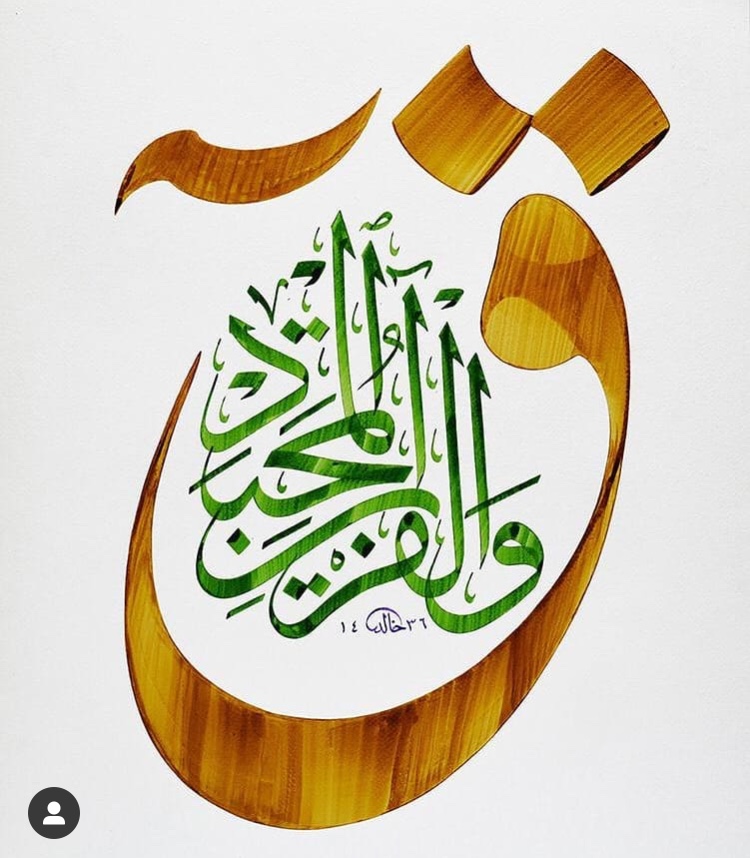 قٓ
وَالْقُرْآنِ الْمَجِيدِ
١٤ خالد ٣٦